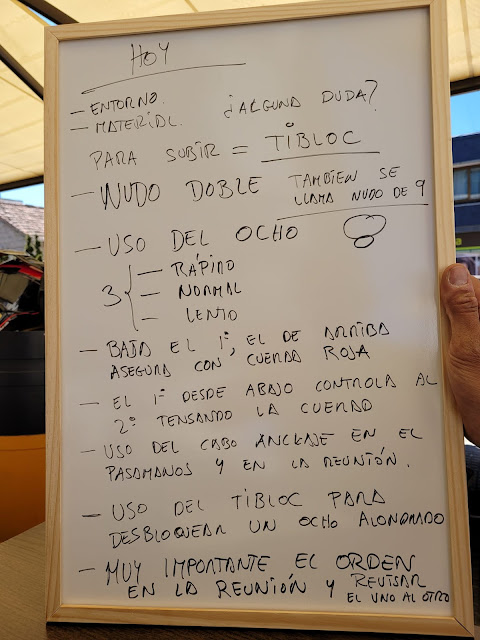 HOY
- ENTORNO.
- MATERIAL. ¿ALGUNA DUDA?
PARA SUBIR = TIBLOC
- NUDO DOBLE TAMBIEN SE
LLAMA NUDO DE 9
- USO DEL OCHO
3 { - RÁPIDO
- NORMAL
- LENTO
- BAJA EL 1º, EL DE ARRIBA
ASEGURA CON CUERDA ROJA
- EL 1º DESDE ABAJO CONTROLA AL
2º TENSANDO LA CUERDA
- USO DEL CABO ANCLAJE EN EL
PASAMANOS Y EN LA REUNIÓN.
- USO DEL TIBLOC PARA
DESBLOQUEAR UN OCHO ALONDRADO
- MUY IMPORTANTE EL ORDEN
EN LA REUNIÓN Y REVISAR
EL UNO AL OTRO